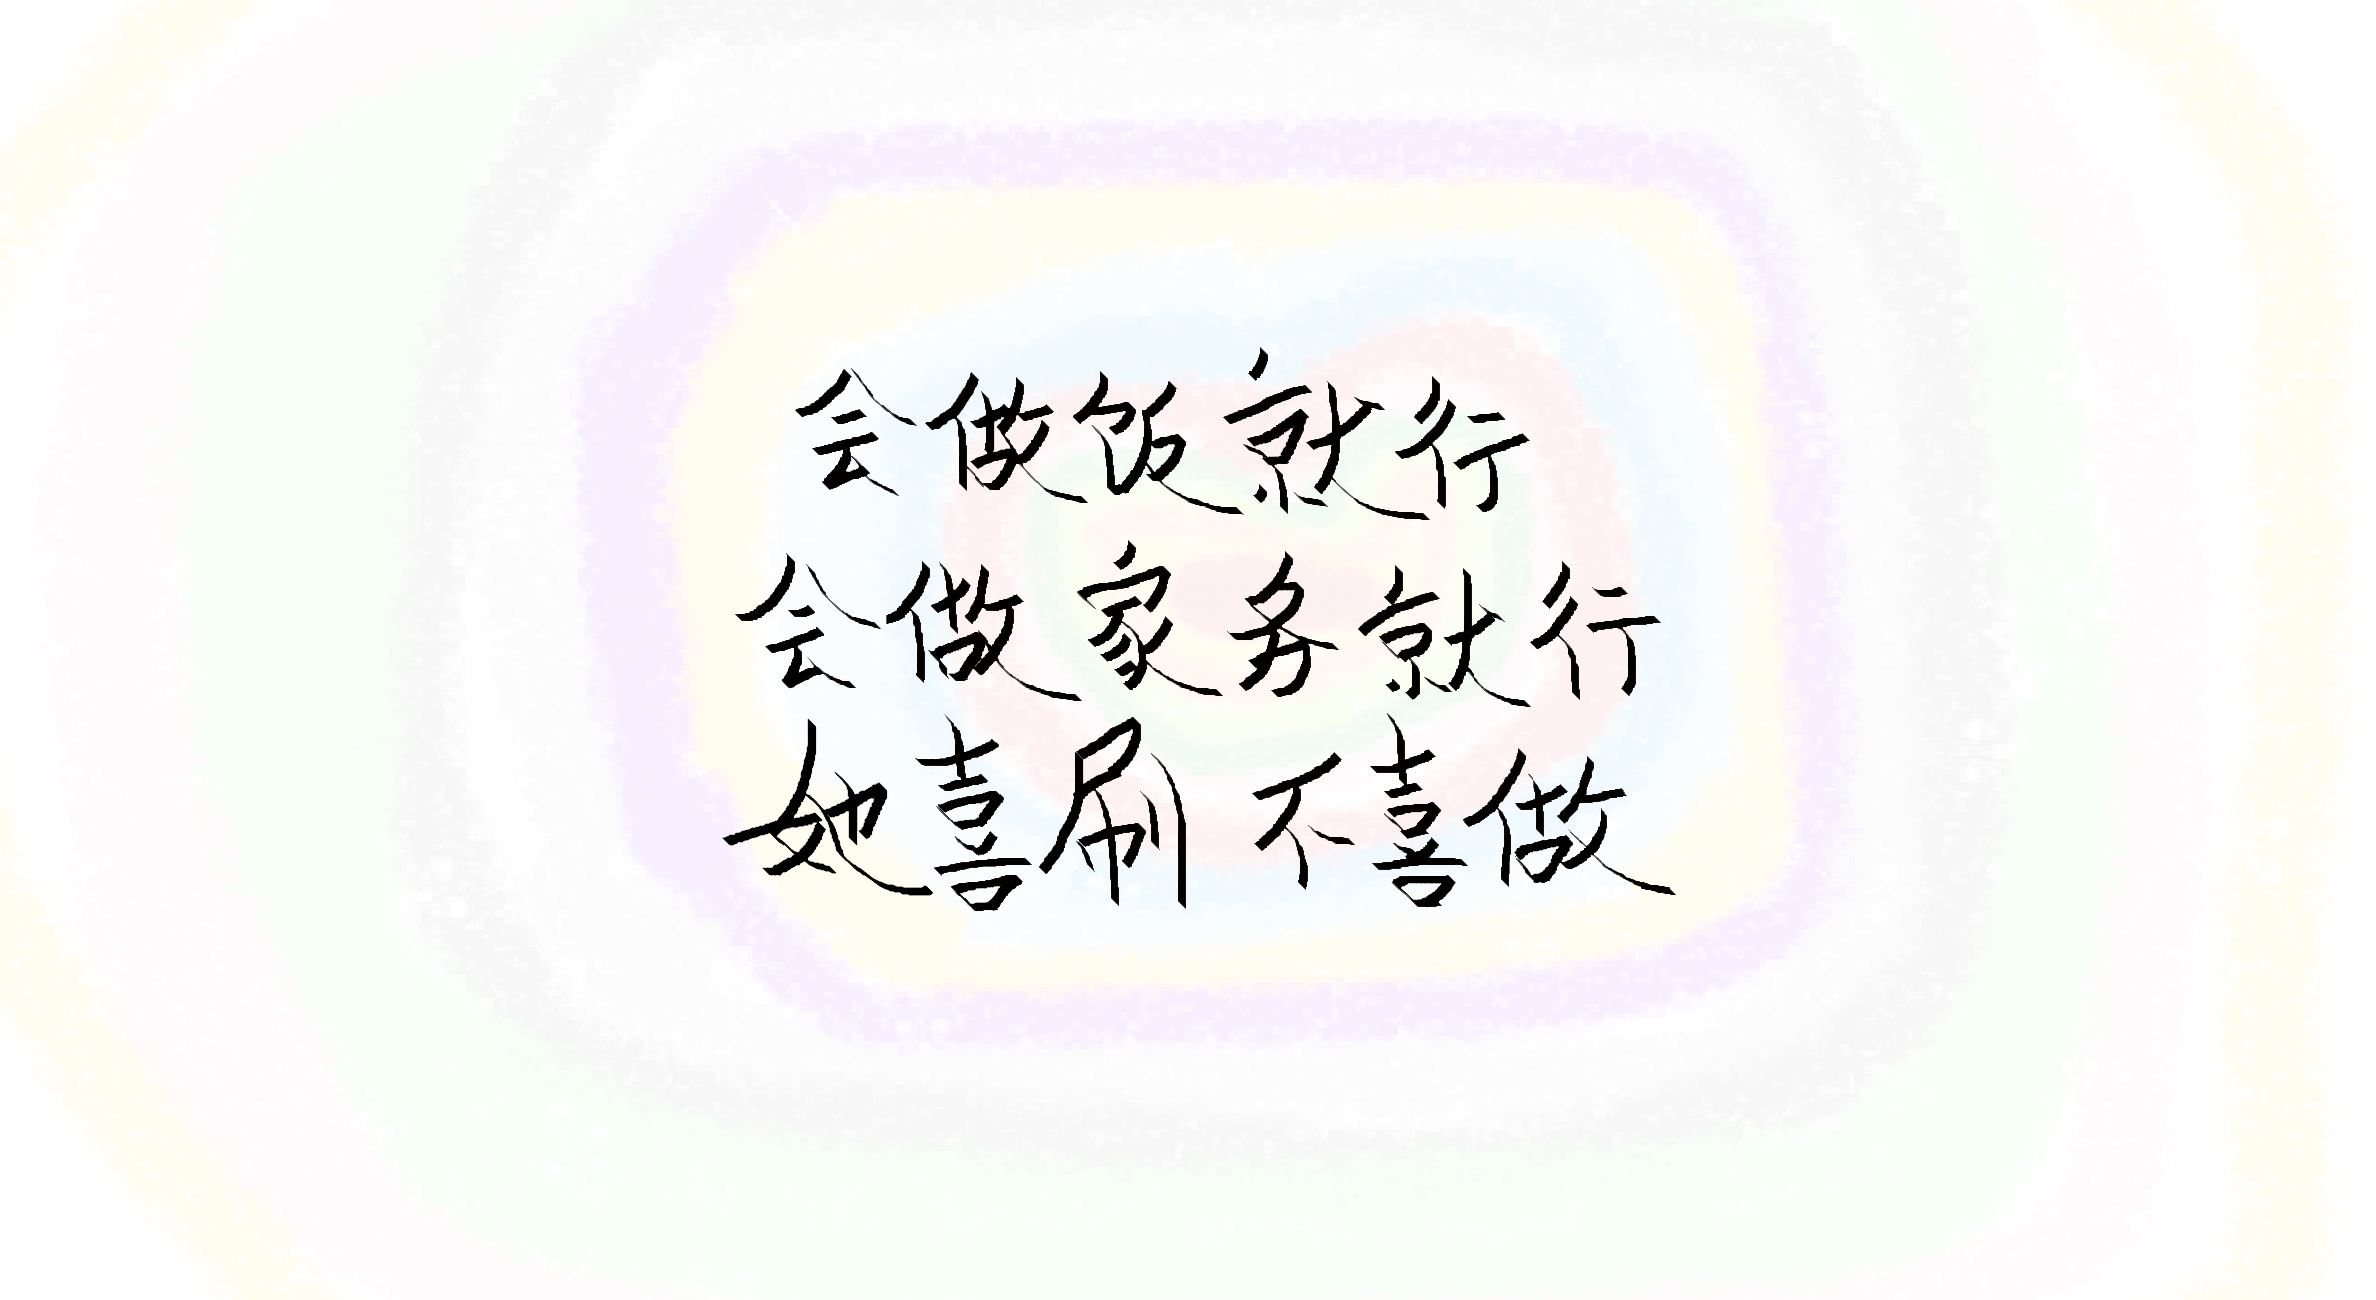 会做饭就行
会做家务就行
她喜刷 不喜做